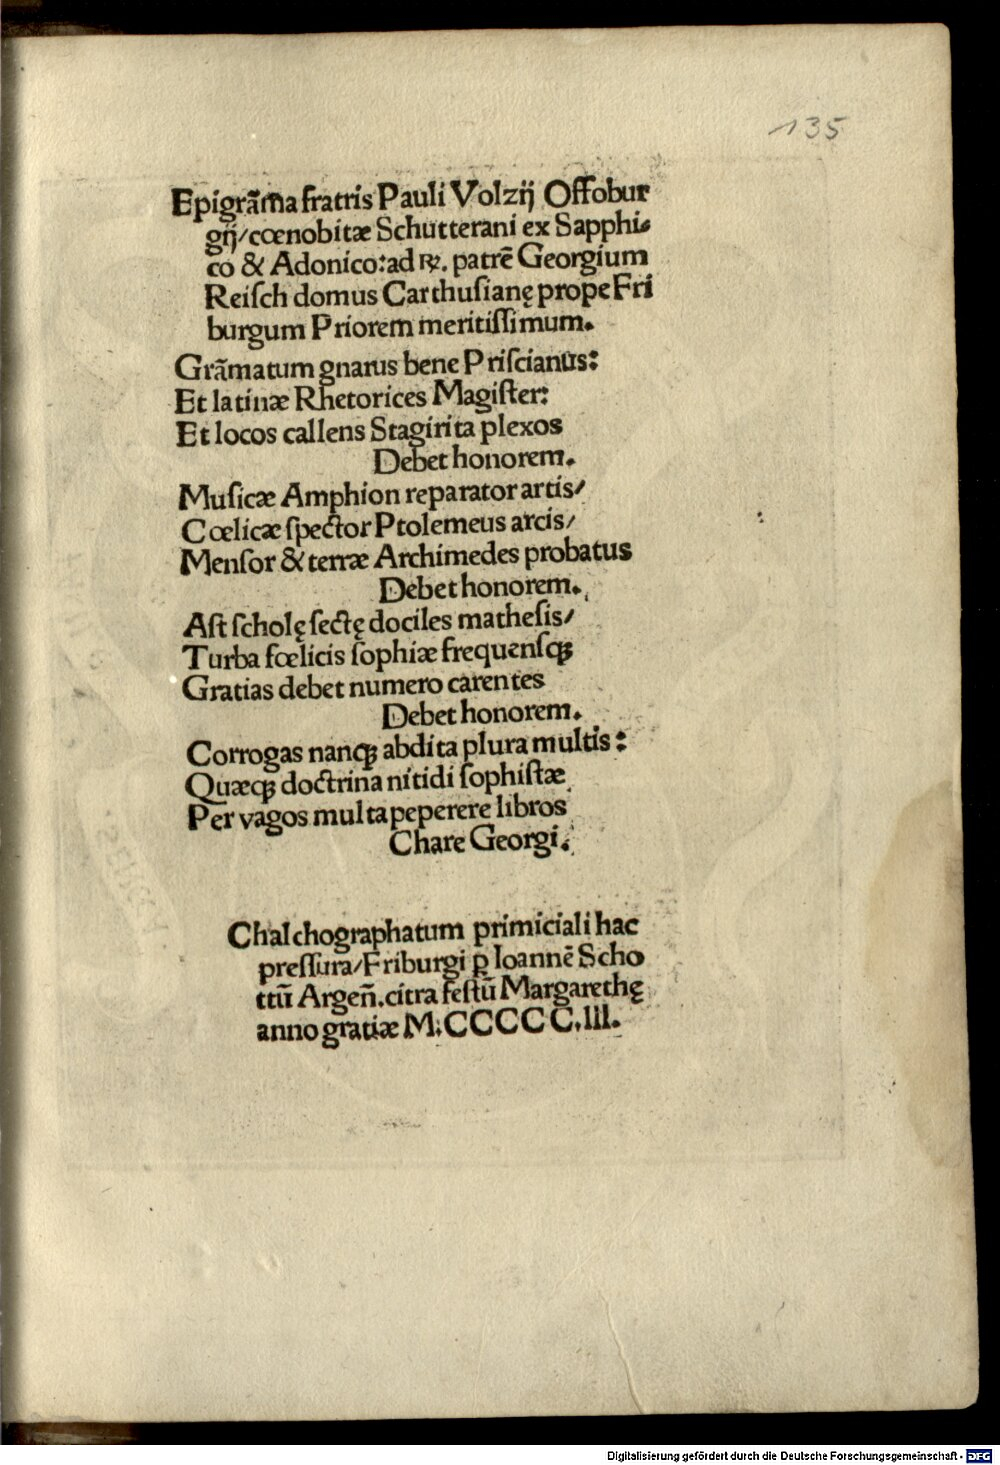 135
Epigrãm̃a fratris Pauli Volzij Offobur
gij/cœnobitæ Schutterani ex Sapphi-
co & Adonico: ad ꝶ. patrẽ Georgium
Reiſch domus Carthusianę prope Fri
burgum Priorem meritiſſimum.
Grãmatum gnarus bene Priſcianus:
Et latinæ Rhetorices Magiſter:
Et locos callens Stagirita plexos
Debet honorem.
Muſicæ Amphion reparator artis/
Cœlicæ ſpector Ptolemeus arcis/
Menſor & terræ Archimedes probatus
Debet honorem.
Aſt ſcholę ſectę dociles matheſis/
Turba fœlicis ſophiæ frequenſqꝫ
Gratias debet numero carentes
Debet honorem.
Corrogas nanqꝫ abdita plura multis:
Quæqꝫ doctrina nitidi ſophiſtæ
Per vagos multa peperere libros
Chare Georgi.
Chalchographatum primiciali hac
preſſura/Friburgi ꝑ Ioannẽ Scho
ttũ Argeñ. citra feſtũ Margarethę
anno gratiæ M.CCCCC.III.
Digitalisierung gefördert durch die Deutsche Forschungsgemeinschaft - DFG